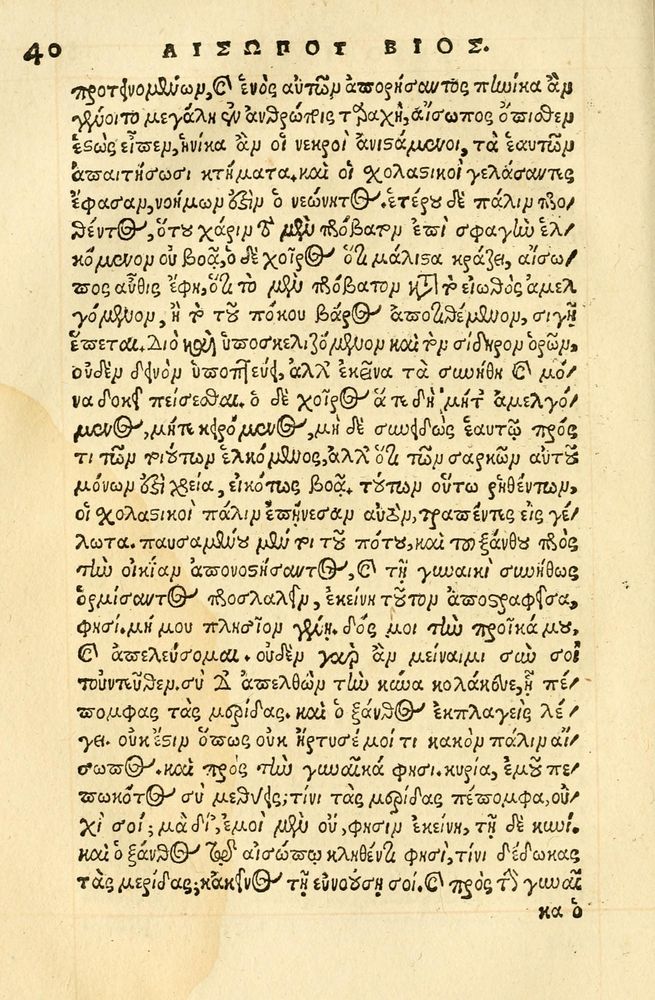 40 ΑΙΣΩΠΟΥ ΒΙΟΣ.
προτεινομένων, καὶ ἑνὸς αὐτῶν ἀπορήσαντος πηνίκα ἂν
γένοιτο μεγάλη ἐν ἀνθρώποις ταραχὴ, αἴσωπος ὄπισθεν
ἑστὼς εἶπεν, ἡνίκα ἂν οἱ νεκροὶ ἀνιστάμενοι, τὰ ἑαυτῶν
ἀπαιτήσωσι κτήματα. καὶ οἱ σχολαστικοὶ γελάσαντες
ἔφασαν, νοήμων ἐστὶν ὁ νεώνητος. ἑτέρου δὲ πάλιν προ
θέντος, ὅτου χάριν τὸ μὲν πρόβατον ἐπὶ σφαγὴν ἑλ
κόμενον οὐ βοᾷ, ὁ δὲ χοῖρος ὅτι μάλιστα κράζει, αἴσω
πος αὖθις ἔφη, ὅτι τὸ μὲν πρόβατον κατὰ τὸ εἰωθὸς ἀμελ
γόμενον, ἢ τὸ τοῦ πόκου βάρος ἀποτιθέμενον, σιγῇ
ἕπεται. Διὸ καὶ ὑποσκελιζόμενον καὶ τὸν σίδηρον ὁρῶν,
οὐδὲν δεινὸν ὑποπτεύει, ἀλλ' ἐκεῖνα τὰ συνήθη καὶ μό
να δοκεῖ πείσεσθαι. ὁ δὲ χοῖρος ἅτε δὴ μήτ' ἀμελγό
μενος, μήτε κειρόμενος, μὴ δὲ συνειδὼς ἑαυτῷ πρός
τι τῶν τοιούτων ἑλκόμενος, ἀλλ' ὅτι τῶν σαρκῶν αὐτοῦ
μόνων ἐστὶ χρεία, εἰκότως βοᾷ. τούτων οὕτω ῥηθέντων,
οἱ σχολαστικοὶ πάλιν ἐπῄνεσαν αὐτὸν, τραπέντες εἰς γέ
λωτα. παυσαμένου μέντοι τοῦ πότου, καὶ τοῦ ξάνθου πρὸς
τὴν οἰκίαν ἀπονοστήσαντος, καὶ τῇ γυναικὶ συνήθως
ὁρμίσαντος προσλαλεῖν, ἐκείνη τοῦτον ἀποστραφεῖσα,
φησί. μή μου πλησίον γένῃ. δός μοι τὴν προῖκά μου,
καὶ ἀπελεύσομαι. οὐδὲν γὰρ ἂν μείναιμι σὺν σοὶ
τοὐντεῦθεν. σὺ δ' ἀπελθὼν τὴν κύνα κολάκευε, ᾗ πέ
πομφας τὰς μερίδας. καὶ ὁ ξάνθος ἐκπλαγεὶς λέ
γει. οὐκ ἔστιν ὅπως οὐκ ἤρτυσέ μοί τι κακὸν πάλιν αἴ
σωπος. καὶ πρὸς τὴν γυναῖκά φησι. κυρία, ἐμοῦ πε
πωκότος σὺ μεθύεις; τίνι τὰς μερίδας πέπομφα, οὐ
χί σοί; μὰ δί', ἐμοὶ μὲν οὐ, φησὶν ἐκείνη, τῇ δὲ κυνί.
καὶ ὁ ξάνθος τῷ αἰσώπῳ κληθέντι φησὶ, τίνι δέδωκας
τὰς μερίδας; κἀκεῖνος τῇ εὐνοούσῃ σοι. καὶ πρὸς τὴν γυναῖ
κα ὁ